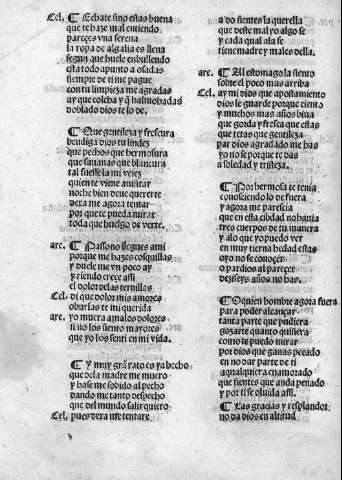 Cel. ¶ Echate fino estas buena
que te haze mal entiendo
pareçes vna serena
la ropa de algalia es llena
segun que huele en bullendo
esta todo apunto a osadas
siempre de ti me pague
con tu limpieza me agradas
ay que colcha y q̃ halmohadas
doblado dios te lo de.
¶ Que gentileza y frescura
bendiga dios tu lindez
que pechos que hermosura
que sauanas que blancura
tal fuesse la mi vejez
quien te viene a visitar
noche bien deue quererte
dexa me agora tentar
por que te pueda mirar
toda que huelgo de verte.
are. ¶ Passo no llegues a mi
porque me hazes cosquillas
y duele me vn poco ay
y riendo creçe assi
el dolor de las ternillas
Cel. di que dolor mis amores
o burlas te mi querida
are. yo muera a malos dolores
si no los siento mayores
que yo los senti en mi vida.
¶ Y muy grã rato es ya hecho
que de la madre me muero
y hase me sobido al pecho
dando me tanto despecho
que del mundo salir quiero
Cel. pues dexa me tentare
a do sientes la querella
que deste mal yo algo se
y cada qual ala se
tiene madre y males della.
are. ¶ Al estomago la siento
sobre el poco mas arriba
Cel. ay mi dios que apostamiento
dios le guarde por que ciento
y muchos mas años biua
que gorda y fresca que estas
que tetas que gentileza
par dios agradado me has
yo no se porque te das
a soledad y tristeza.
¶ Por hermosa te tenia
conosciendo lo de fuera
y agora me parescia
que en esta cibdad no hauia
tres cuerpos de tu manera
y a lo que yo puedo ver
en muy tierna hedad estas
oyo no se conoçer
o par dios al pareçer
dezisçys años no has.
¶ O quien hombre agora fuera
para poder alcançar
tanta parte que pudiera
gozarte quanto quisiera
como te puedo mirar
por dios que ganas pecado
en no dar parte de ti
a qualquiera enamorado
que sientes que anda penado
y por ti se oluida assi.
¶ Las gracias y resplandor
no da dios en altitud